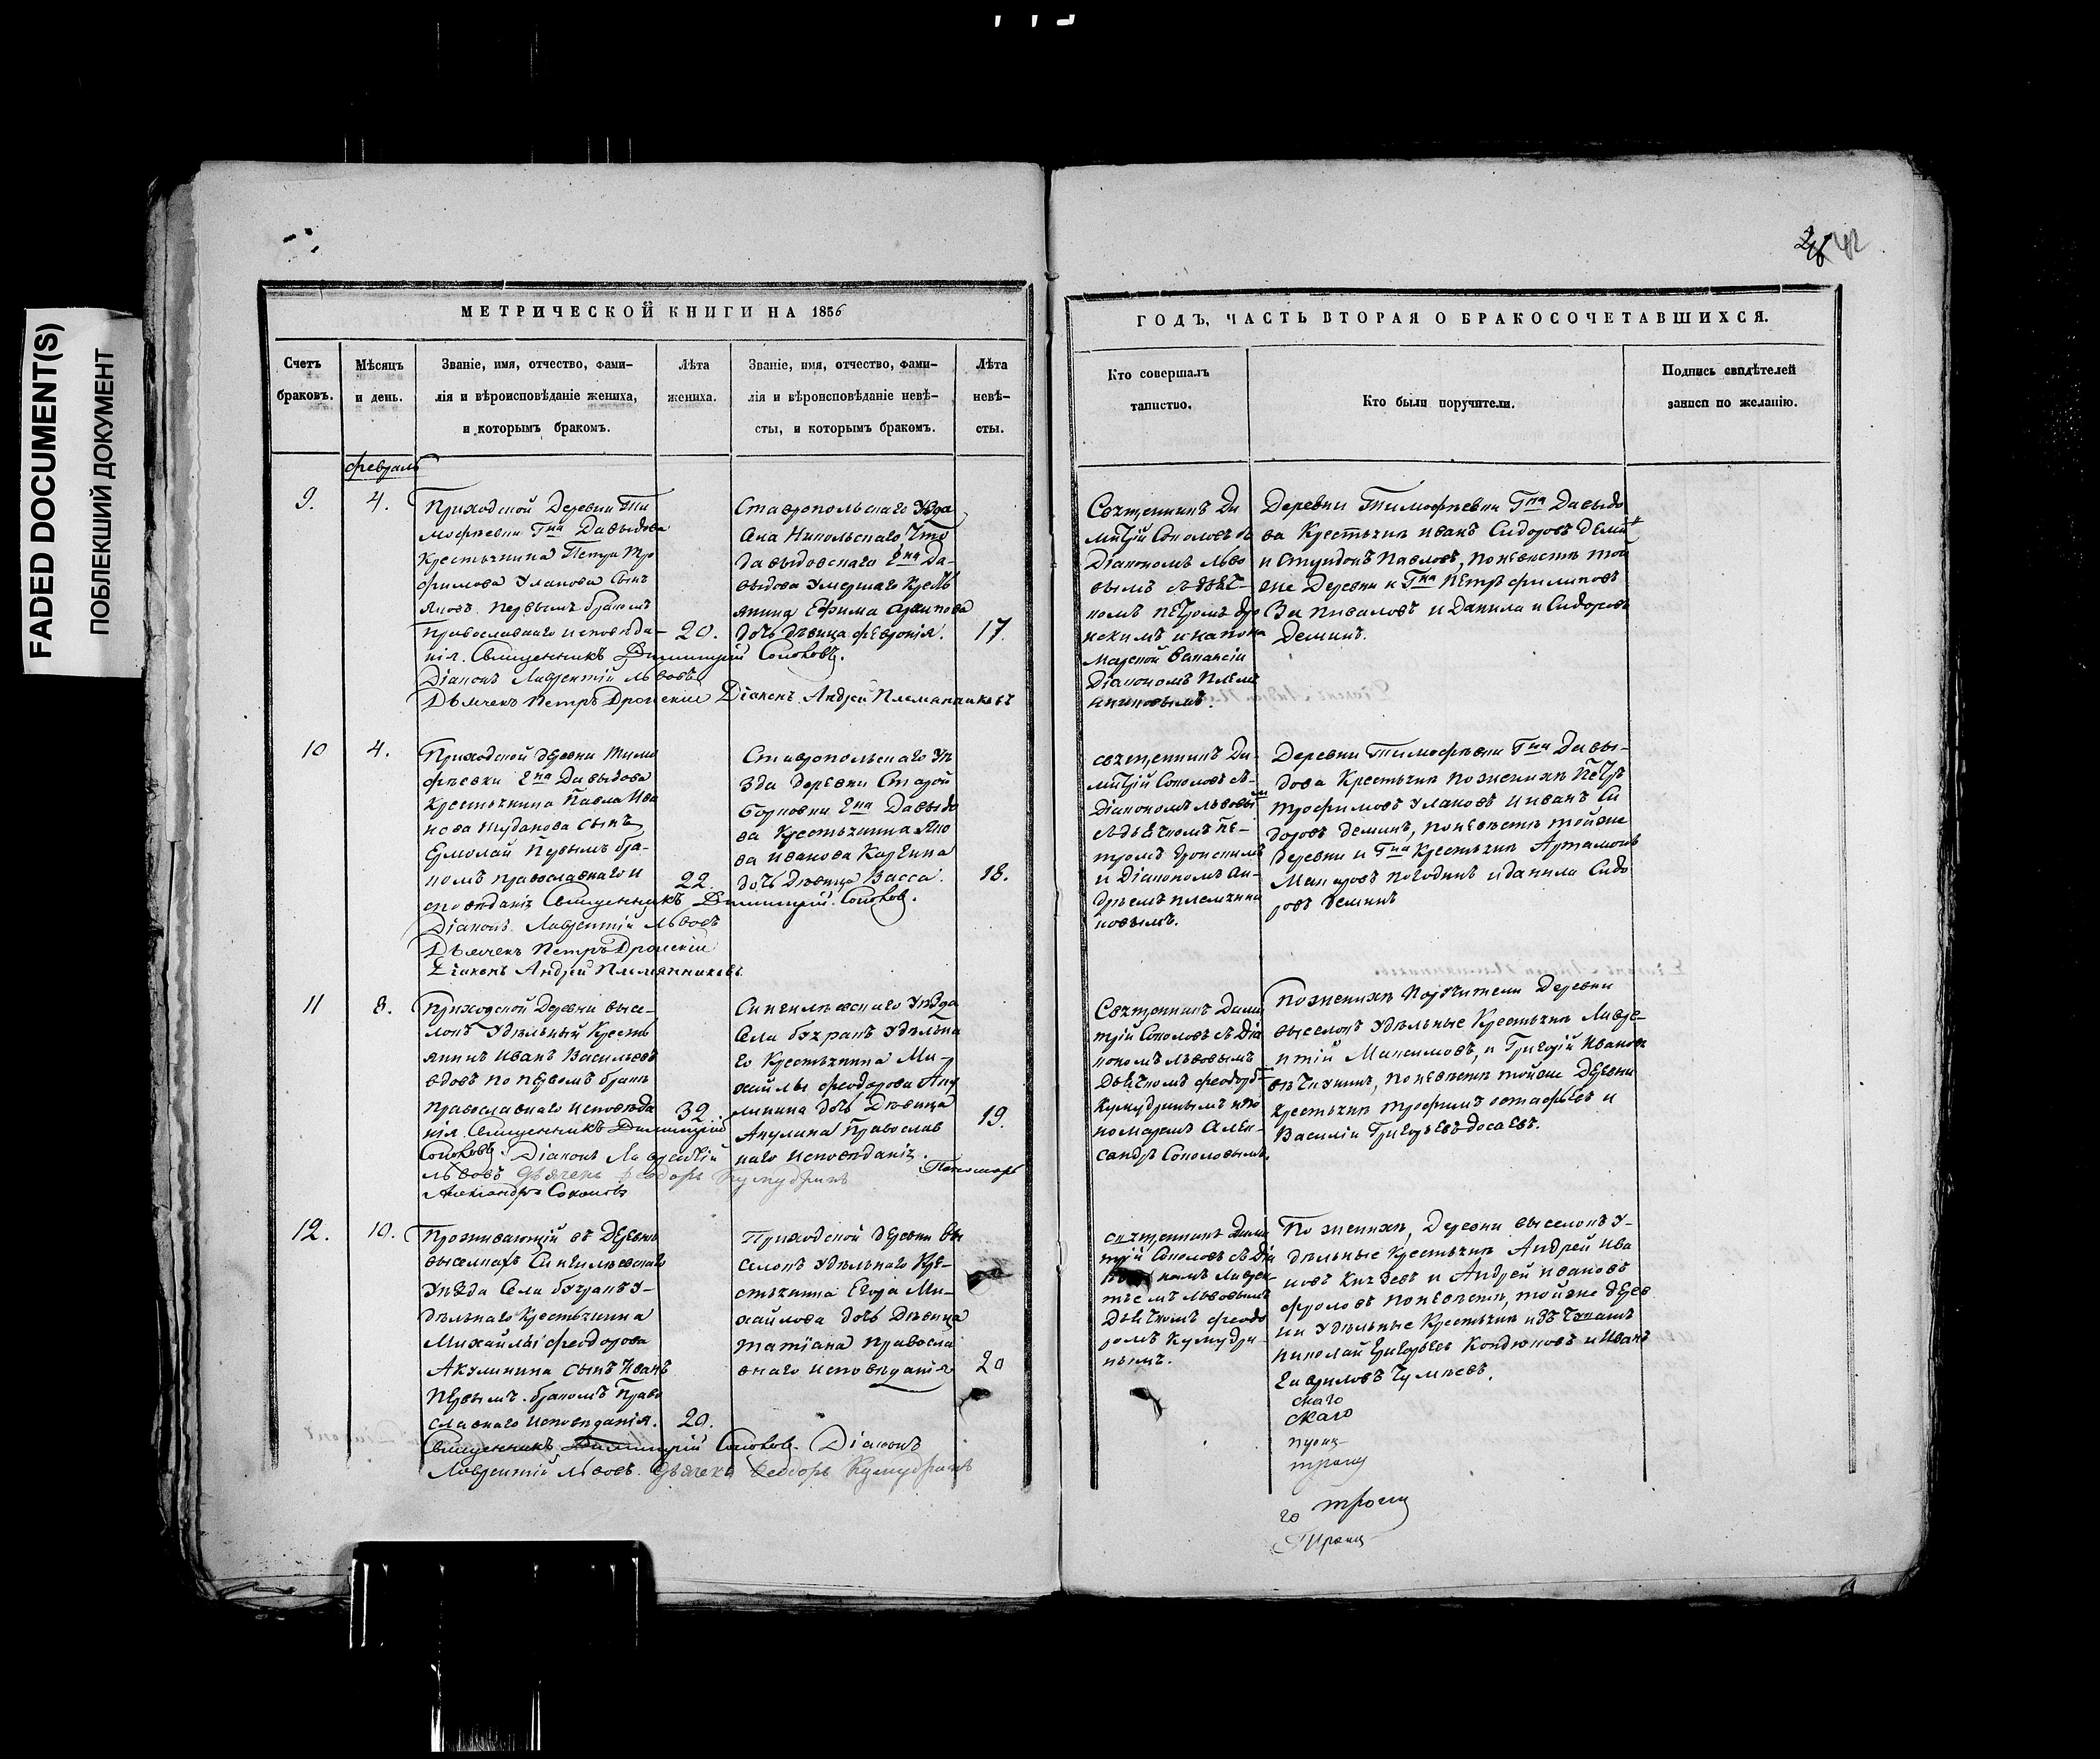 FADED DOCUMENT(S)
ПОБЛЕКШИЙ ДОКУМЕНТ
МЕТРИЧЕСКОЙ КНИГИ НА 1856
Счетъ браковъ.
Мѣсяцъ и день.
Званіе, имя, отчество, фами-
лія и вѣроисповѣданіе жениха,
и которымъ бракомъ.
Лѣта жениха.
Званіе, имя, отчество, фами-
лія и вѣроисповѣданіе невѣ-
сты, и которымъ бракомъ.
Лѣта невѣ-
сты.
февраль
9.
4.
Приходской Деревни Ти
мофѣевки Гна Давыдова
Крестьянина Петра Тро
фимова Улапова Сынъ
Яковъ первымъ бракомъ
Православнаго исповѣда-
нія. Священникъ Димитрій Соколовъ.
Діаконъ Лаврентій Львовъ
Дьячекъ Петръ Дронскій Діаконъ Андрей Племянниковъ
20.
Ставропольскаго Уѣзда
Села Никольскаго Что
Давыдовскаго Гна Да-
выдова умершаго Крест
янина Ефима Архипова
дочь дѣвица Февронія.
17.
10
4.
Приходской деревни Тимо
фѣевки Гна Давыдова
Крестьянина Павла Ива
нова Кудакова сынъ
Ермолай Первымъ бра-
комъ православнаго и
сповѣданія Священникъ Димитрій Соколов.
Діаконъ Лаврентій Львовъ
Дьячекъ Петръ Дронскій
Діаконъ Андрей Племянниковъ
22.
Ставропольскаго Уѣ
зда деревни Старой
Боровки Гна Давыдо
ва Крестьянина Яко
ва Иванова Каргина
дочь Дѣвица Васса.
18.
11
8.
Приходской Деревни высе-
локъ Удѣльный Кресть
янинъ Иванъ Васильевъ
вдовъ по первомъ бракѣ
Православнаго исповѣда
нія. Священникъ Димитрій
Соколовъ. Діаконъ Лаврентій
Львовъ Дьячекъ Феодоръ Кумудринъ Пономарь
Александръ Соколовъ
32.
Сингилѣевскаго Уѣзда
Села Бѣгранъ Удѣльна
го Крестьянина Ми-
хайлы Феодорова Аку
линина дочь Дѣвица
Акулина Православ
наго исповѣданія.
19.
12.
10.
Проживающій въ Деревнѣ
выселкахъ Сингилѣевскаго
Уѣзда Села У-
дѣльнаго Крестьянина
Михайлы Феодорова
Акулинина сынъ Иванъ
Первымъ бракомъ Право
славнаго исповѣданія.
Священникъ Димитрій Соколов. Діаконъ
Лаврентій Львовъ. Дьячекъ Феодоръ Кумудринъ
20.
Приходской деревни вы
селокъ Удѣльнаго Кре-
стьянина Егора Ми-
хайлова дочь Дѣвица
Татіана Правосла
внаго исповѣданія
20
42
ГОДЪ, ЧАСТЬ ВТОРАЯ О БРАКОСОЧЕТАВШИХСЯ.
Кто совершалъ
таинство.
Кто были поручители.
Подпись свидѣтелей
записи по желанію.
Священникъ Ди
митрій Соколовъ съ
Діакономъ Льво
вымъ съ дьяч-
комъ Петромъ Дро
нскимъ и на поно
марской вакансіи
Діакономъ Племя
нниковымъ.
Деревни Тимофѣевки Гна Давыдо
ва Крестьяне Иванъ Сидоровъ Деминъ
и Спиридонъ Павловъ, по невѣстѣ той
же Деревни и Гна Петръ Филиповъ
и Данила Сидоровъ
Деминъ.
священникъ Ди-
митрій Соколовъ съ
Діакономъ Львовымъ
съ дьячкомъ Пе-
тромъ Дронскимъ
и Діакономъ Ан-
дреемъ Племянни
ковымъ.
Деревни Тимофѣевки Гна Давы-
дова Крестьяне по женихѣ Петръ
Трофимовъ Улаповъ и Иванъ Си
доровъ Деминъ, по невѣстѣ той же
деревни и Гна Крестьяне Артамонъ
Макаровъ Погодинъ и Данила Сидо
ровъ Деминъ
Священникъ Дими
трій Соколовъ съ Діа
кономъ Львовымъ
Дьячкомъ Феодоромъ
Кумудринымъ и по
номаремъ Алек-
сандр Соколовымъ.
По женихѣ Поручители Деревни
выселокъ Удѣльные Крестьяне Лавре-
нтій Максимовъ, и Григорій Ивановъ
по невѣстѣ той же деревни
Крестьяне Трофимъ Остафьевъ и
Василій Григорьевъ Досаевъ.
священникъ Дими
трій Соколовъ съ Діа
кономъ Лаврен-
тьемъ Львовымъ
Дьячкомъ Феодо
ромъ Кумудри-
нымъ.
По женихѣ, Деревни выселокъ У-
дѣльные Крестьяне Андрей Ива
новъ Князевъ и Андрей Ивановъ
Фроловъ по невѣстѣ, той же дерев
ни Удѣльные Крестьяне
Николай Григорьевъ Кондюковъ и Иванъ
Гавриловъ Чумаевъ.
скаго
скаго
троиц
го трои
Троиц